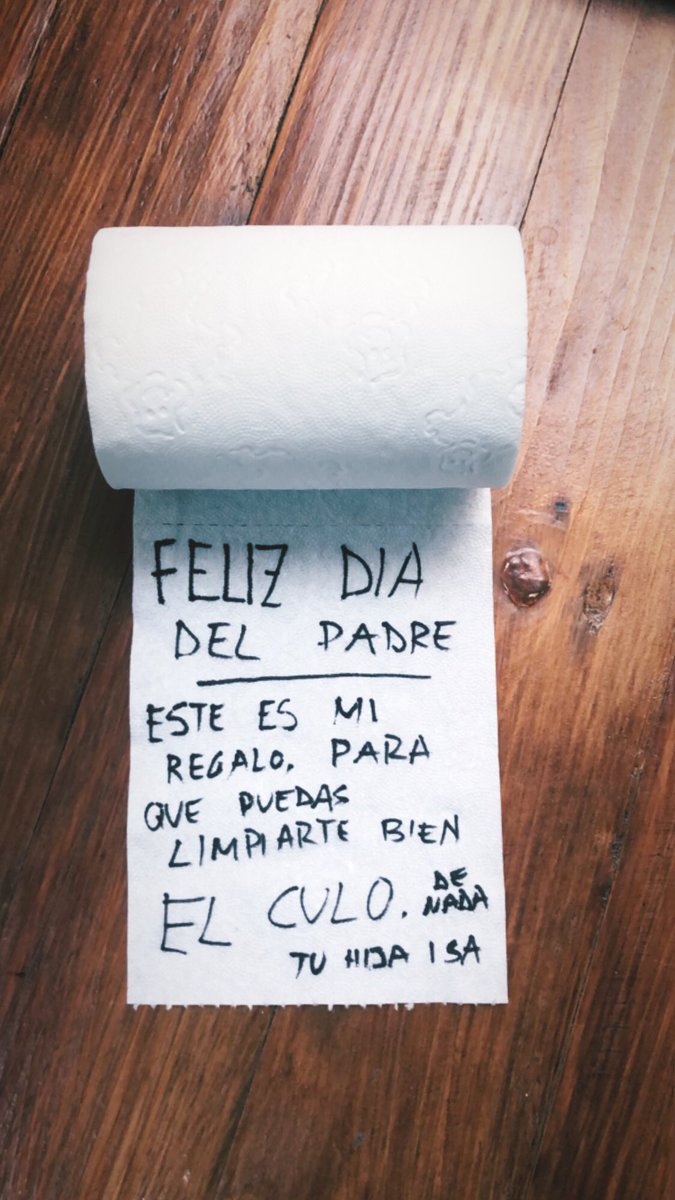 FELIZ DIA
DEL PADRE
ESTE ES MI
REGALO. PARA
QUE PUEDAS
LIMPIARTE BIEN
EL CULO. DE NADA
TU HIJA ISA